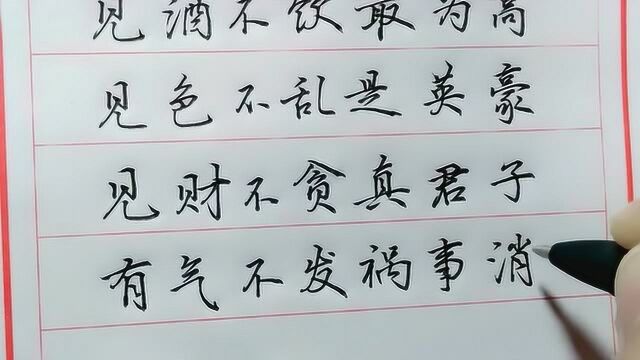 见酒不饮最为高
见色不乱是英豪
见财不贪真君子
有气不发祸事消